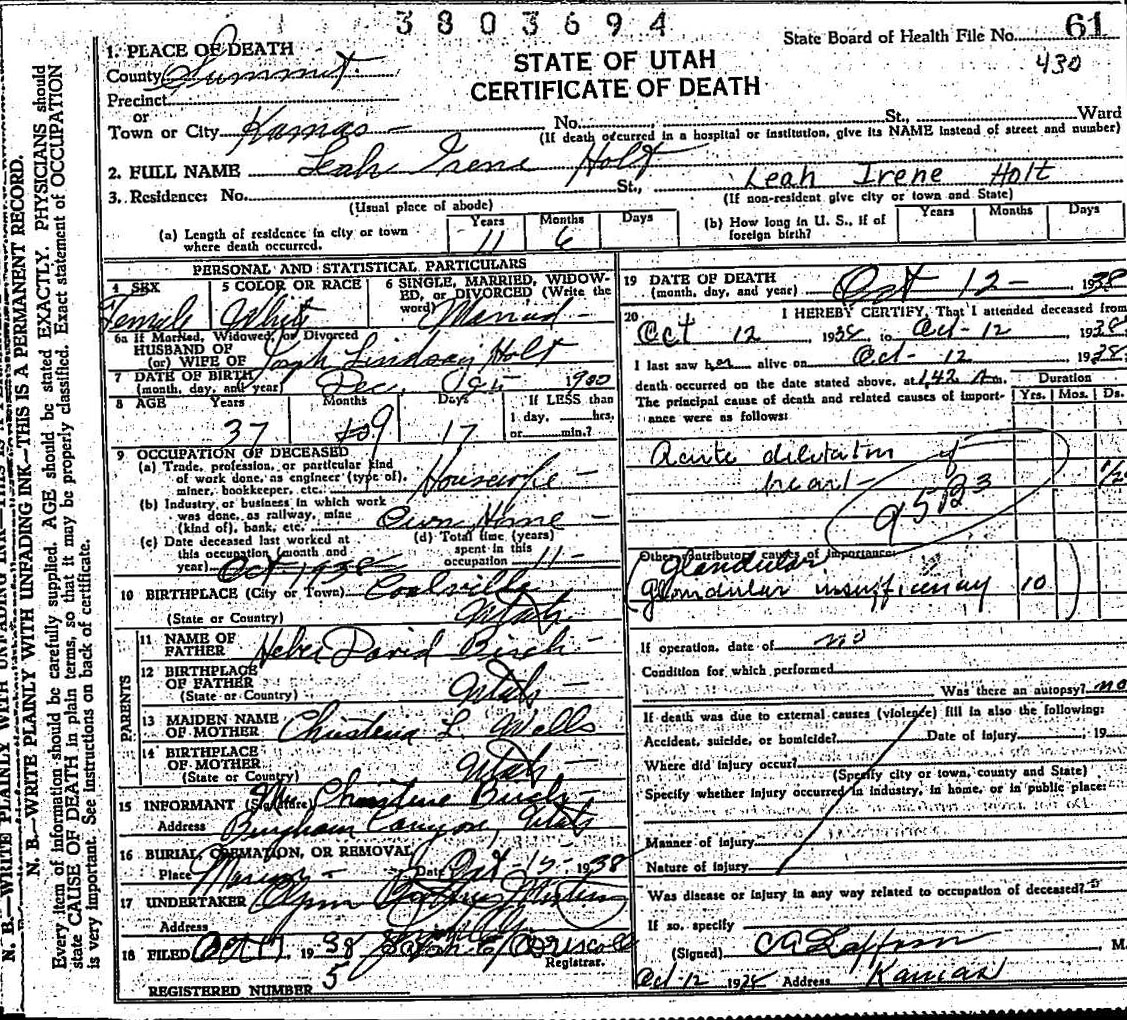 3803694
State Board of Health File No. 61
430
STATE OF UTAH
CERTIFICATE OF DEATH
1. PLACE OF DEATH
County Summit
Precinct
or
Town or City Kamas - No. St., Ward
(If death occurred in a hospital or institution, give its NAME instead of street and number)
2. FULL NAME Leah Irene Holt Leah Irene Holt
3. Residence: No. St.,
(Usual place of abode) (If non-resident give city or town and State)
(a) Length of residence in city or town where death occurred. Years 11 Months 6 Days
(b) How long in U. S., if of foreign birth? Years Months Days
PERSONAL AND STATISTICAL PARTICULARS
4 SEX Female
5 COLOR OR RACE White
6 SINGLE, MARRIED, WIDOWED, or DIVORCED (Write the word) Married -
6a If Married, Widowed, or Divorced
HUSBAND OF
(or) WIFE OF Lindsay Holt
7 DATE OF BIRTH
(month, day, and year) Dec. 1900
8 AGE Years 37 Months 9 Days 17 If LESS than 1 day, hrs. or min.?
9 OCCUPATION OF DECEASED
(a) Trade, profession, or particular kind of work done, as engineer (type of), miner, bookkeeper, etc. Housewife -
(b) Industry or business in which work was done, as railway, mine (kind of), bank, etc. Own Home -
(c) Date deceased last worked at this occupation (month and year) Oct 1938
(d) Total time (years) spent in this occupation 11 -
10 BIRTHPLACE (City or Town) Coalville
(State or Country) Utah
PARENTS
11 NAME OF FATHER Heber David Birch
12 BIRTHPLACE OF FATHER
(State or Country) Utah
13 MAIDEN NAME OF MOTHER Christena L. Wells
14 BIRTHPLACE OF MOTHER
(State or Country) Utah
15 INFORMANT (Signature) Mrs. Christene Birch -
Address Bingham Canyon, Utah
16 BURIAL, CREMATION, OR REMOVAL
Place Date Oct 15 - 1938
17 UNDERTAKER
Address
18 FILED Oct 17, 1938
Registrar.
REGISTERED NUMBER 5
19 DATE OF DEATH
(month, day, and year) Oct 12 - , 1938
20 I HEREBY CERTIFY, That I attended deceased from
Oct 12 1938, to Oct - 12 1938
I last saw her alive on Oct - 12 1938,
death occurred on the date stated above, at 1:42 A m.
The principal cause of death and related causes of importance were as follows:
Duration
Yrs. Mos. Ds.
Acute dilatation of
heart - 1/2
95B3
Other contributory causes of importance:
Glandular
Glandular insufficiency 10
If operation, date of no
Condition for which performed
Was there an autopsy? no
If death was due to external causes (violence) fill in also the following:
Accident, suicide, or homicide? Date of injury , 19
Where did injury occur?
(Specify city or town, county and State)
Specify whether injury occurred in industry, in home, or in public place:
Manner of injury
Nature of injury
Was disease or injury in any way related to occupation of deceased?
If so, specify
(Signed) M.
Oct 12 19 Address Kamas
N. B.—WRITE PLAINLY WITH UNFADING INK—THIS IS A PERMANENT RECORD.
Every item of information should be carefully supplied. AGE should be stated EXACTLY. PHYSICIANS should
state CAUSE OF DEATH in plain terms, so that it may be properly classified. Exact statement of OCCUPATION
is very important. See instructions on back of certificate.